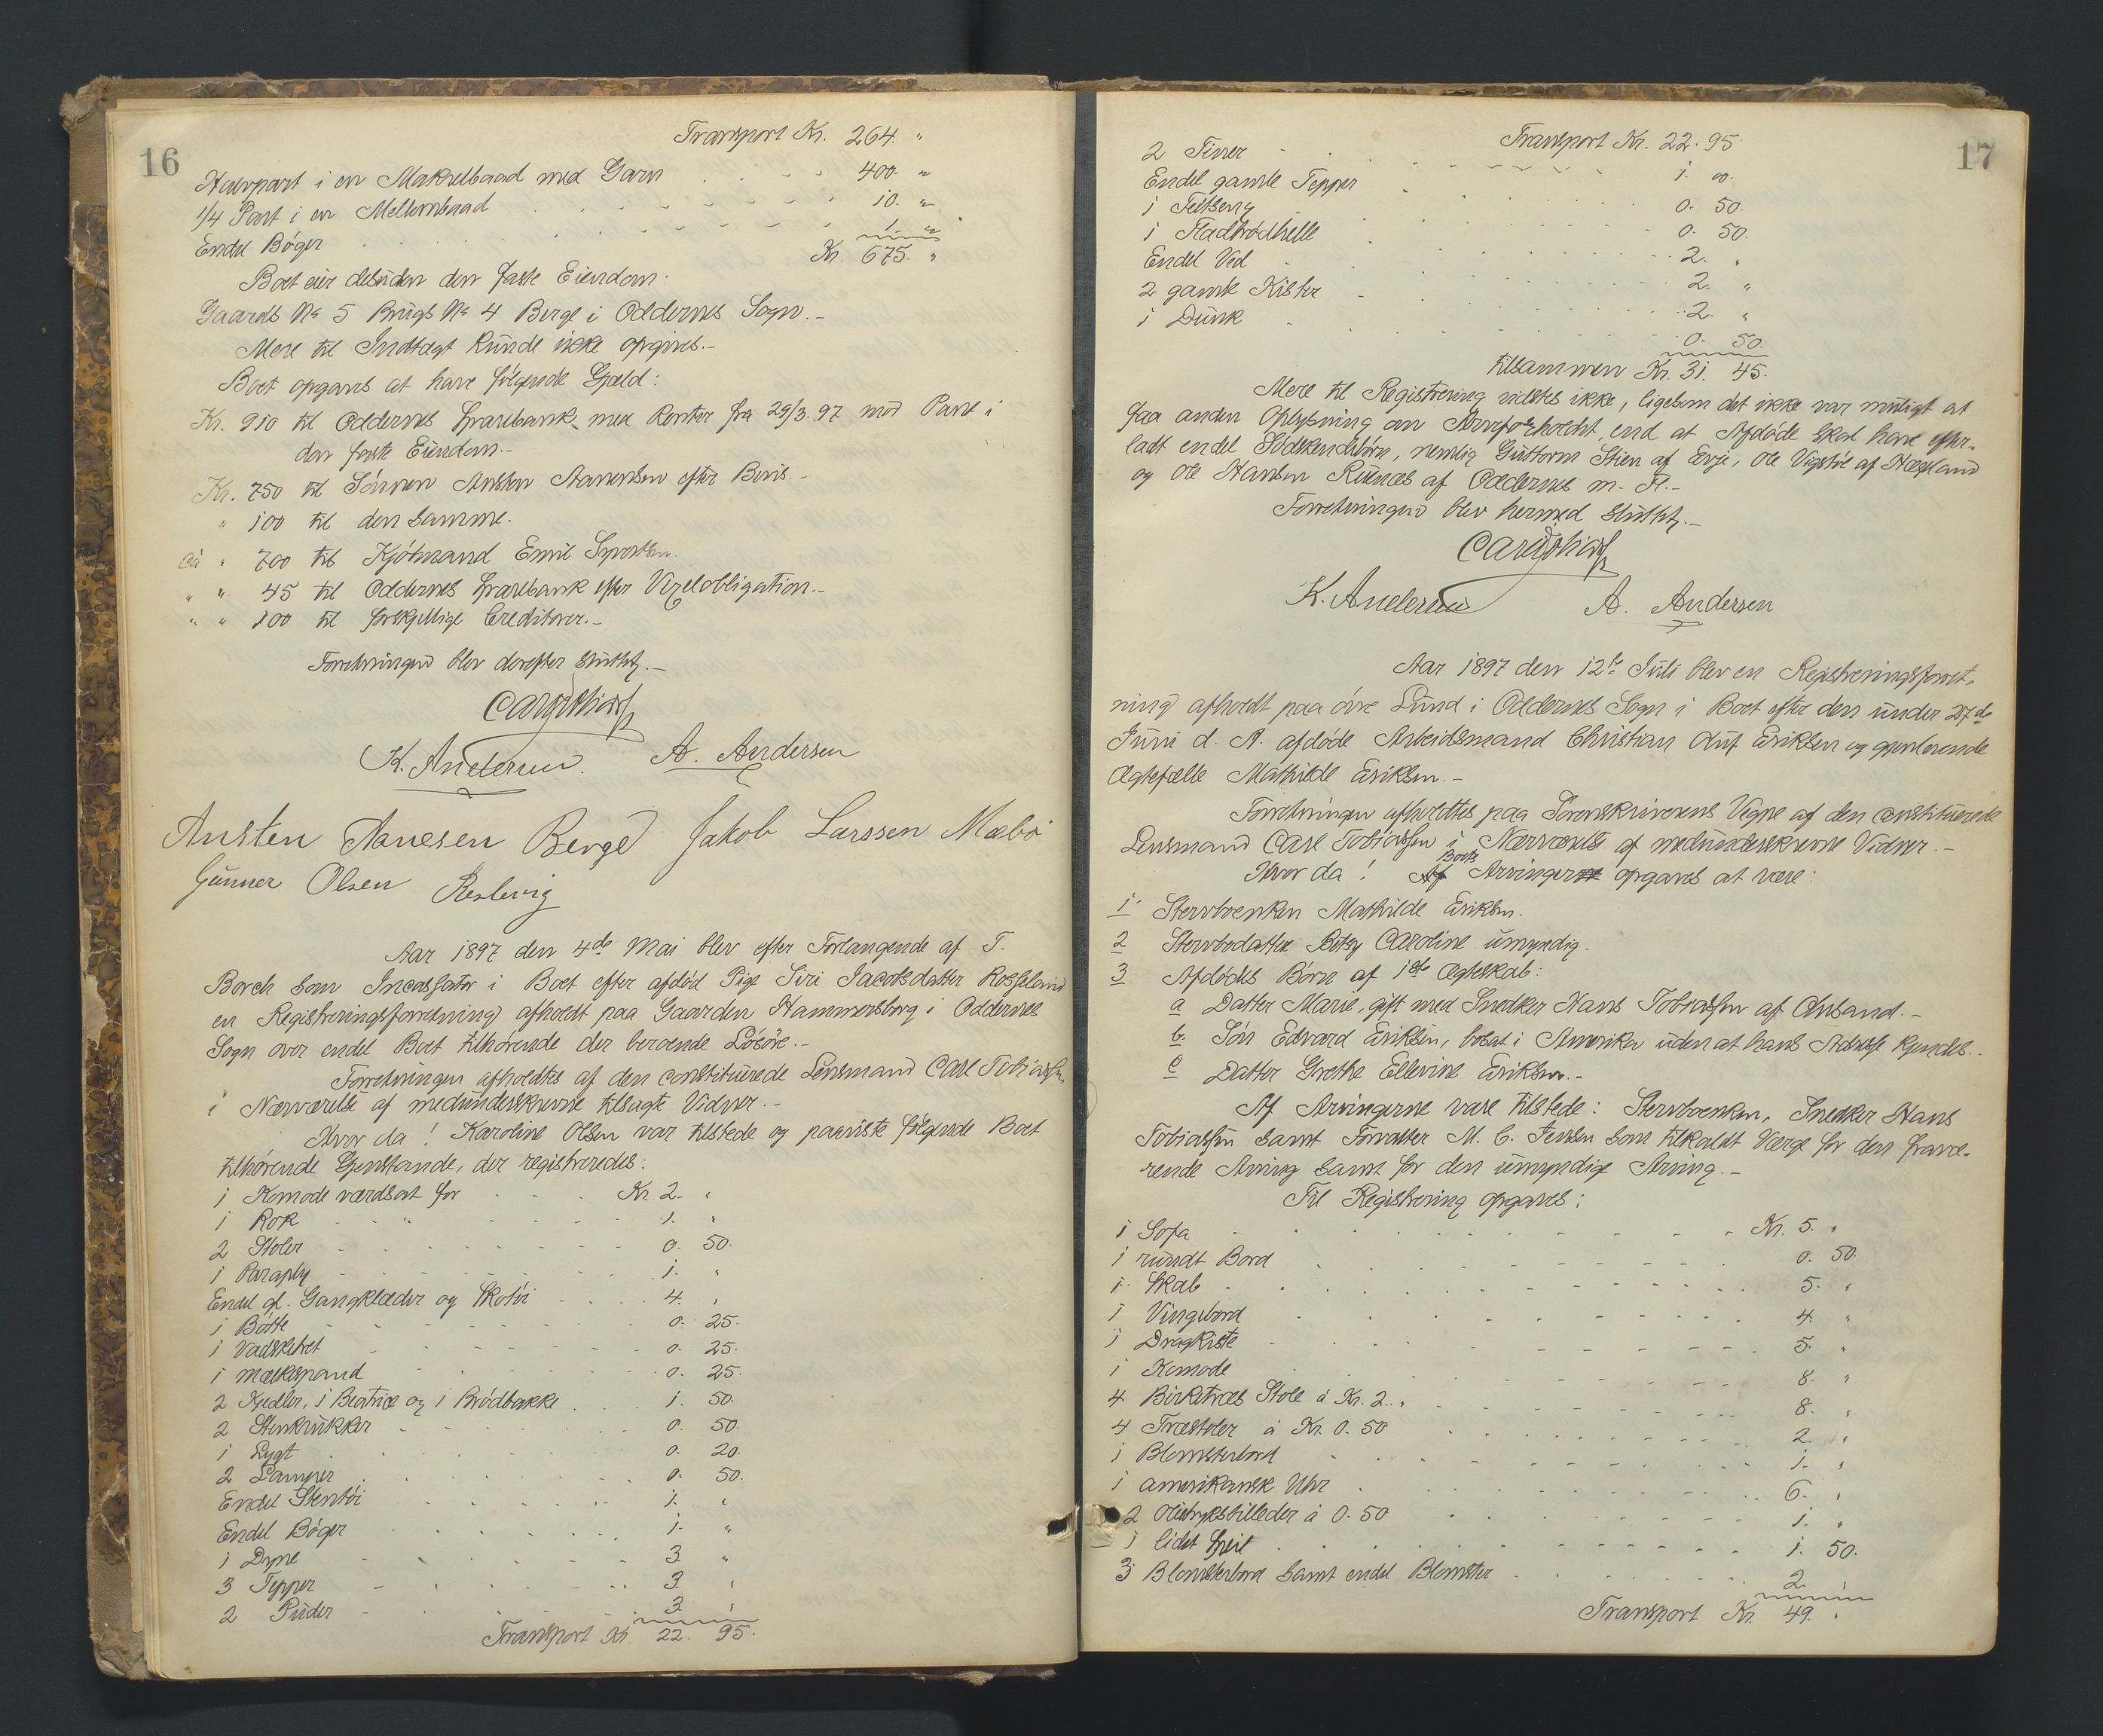 16
Transport Kr. 264. "
Halvpart i en Makrelbaad med Garn 400. "
1/4 Part i en Mellembaad 10. "
Endel Bøger 1. "
Kr. 675. "
Boet eier desuden den faste Eiendom:
Gaards No 5 Brugs No 4 Berge i Oddernes Sogn.-
Mere til Indtægt kunde ikke opgives.-
Boet opgaves at have følgende Gjæld:
Kr. 910 til Oddernes Sparebank med Renter fra 29/3.97 mod Pant i
den faste Eiendom.-
Kr. 750 til Sønnen Ansten Aanensen efter Bevis.-
" 100 til den samme.
ca " 700 til Kjøbmand Emil
" " 45 til Oddernes Sparebank efter Vexelobligation.-
" " 100 til forskjellige Creditorer.-
Forretningen blev derefter sluttet.-
K. Andersen. A. Andersen
Ansten Aanesen Berge Jakob Larssen Mæbø
Gunner Olsen
Aar 1897 den 4de Mai blev efter Forlangende af T.
Borch som Incassator i Boet efter afdød Pige Siri Jacobsdatter Rosseland
en Registreringsforretning afholdt paa Gaarden Hammersborg i Oddernes
Sogn over endel Boet tilhørende der beroende Løsøre.-
Forretningen afholdtes af den constituerede Lensmand Carl Tobiassen
i Nærværelse af medunderskrevne tilsagte Vidner.-
Hvor da! Karoline Olsen var tilstede og paaviste følgende Boet
tilhørende Gjenstande, der registreredes:
1 Komode værdsat for Kr 2. "
1 Rok " 1. "
2 Stoler 0. 50.
1 Paraply 1. "
Endel gl. Gangklæder og Skotøi 4. "
1 Bøtte 0. 25.
1 Vadskebret 0. 25.
1 Melkespand 0. 25.
2 Kjedler, 1 og 1 Brødbakke 1. 50.
2 Stenkrukker 0. 50.
1 Lygt 0. 20.
2 Lamper 0. 50.
Endel Stentøi 1. "
Endel Bøger 1. "
1 Dyne 3. "
3 Tepper 3. "
2 Puder 3. "
Transport Kr. 22. 95.
17
Transport Kr. 22. 95.
2 Tiner 1. 00.
Endel gamle Tepper 0. 50.
1 Feltseng 0. 50.
1 Fladbrødhelle 2. "
Endel Ved 2. "
2 gamle Kister 2. "
1 Dunk 0. 50.
tilsammen Kr. 31. 45.
Mere til Registrering vidstes ikke, ligesom det ikke var muligt at
faa anden Oplysning om Arveforholdet, end at Afdøde skal have efter-
ladt endel Södskendebörn, nemlig Guttorm Stien af Evje, Ole Vigstöl af Hægeland
og Ole Hansen af Oddernes m. Fl.-
Forretningen blev hermed sluttet.-
K. Andersen A. Andersen
Aar 1897 den 12te Juli blev en Registreringsforret-
ning afholdt paa övre Lund i Oddernes Sogn i Boet efter den under 27de
Juni d. A. afdöde Arbeidsmand Christian Eriksen og gjenlevende
Ægtefælle Mathilde Eriksen.-
Forretningen afholdtes paa Sorenskriverens Vegne af den constituerede
Lensmand Carl Tobiassen i Nærværelse af medunderskrevne Vidner.-
Hvor da! Boets Arvinger opgaves at være:
1. Stervboenken Mathilde Eriksen.
2 Stervbodatter Betsy Caroline umyndig.
3 Afdødes Børn af 1ste Ægteskab:
a Datter Marie, gift med Snedker Hans Tobiassen af Chrsand.-
b. Sön Edvard Eriksen, bosat i Amerika uden at hans Adresse kjendes.-
c Datter Grethe Ellevine Eriksen.-
Af Arvingerne vare tilstede: Stervboenken, Snedker Hans
Tobiassen samt Forvalter M. C. Jensen som tilkaldt Værge for den fravæ-
rende Arving samt for den umyndige Arving.-
Til Registrering opgaves:
1 Sofa Kr. 5. "
1 rundt Bord 0. 50.
1 Skab 5. "
1 Vingebord 4. "
1 Dragkiste 5. "
1 Komode 8. "
4 Birketræs Stole á Kr. 2. " 8. "
4 Træstoler á Kr. 0. 50 2. "
1 Blomsterbord 1. "
1 amerikansk Uhr 6. "
2 Olietryksbilleder á 0. 50 1. "
1 lidet Speil 1. 50.
3 Blomsterbord samt endel Blomster 2. "
Transport Kr. 49. "